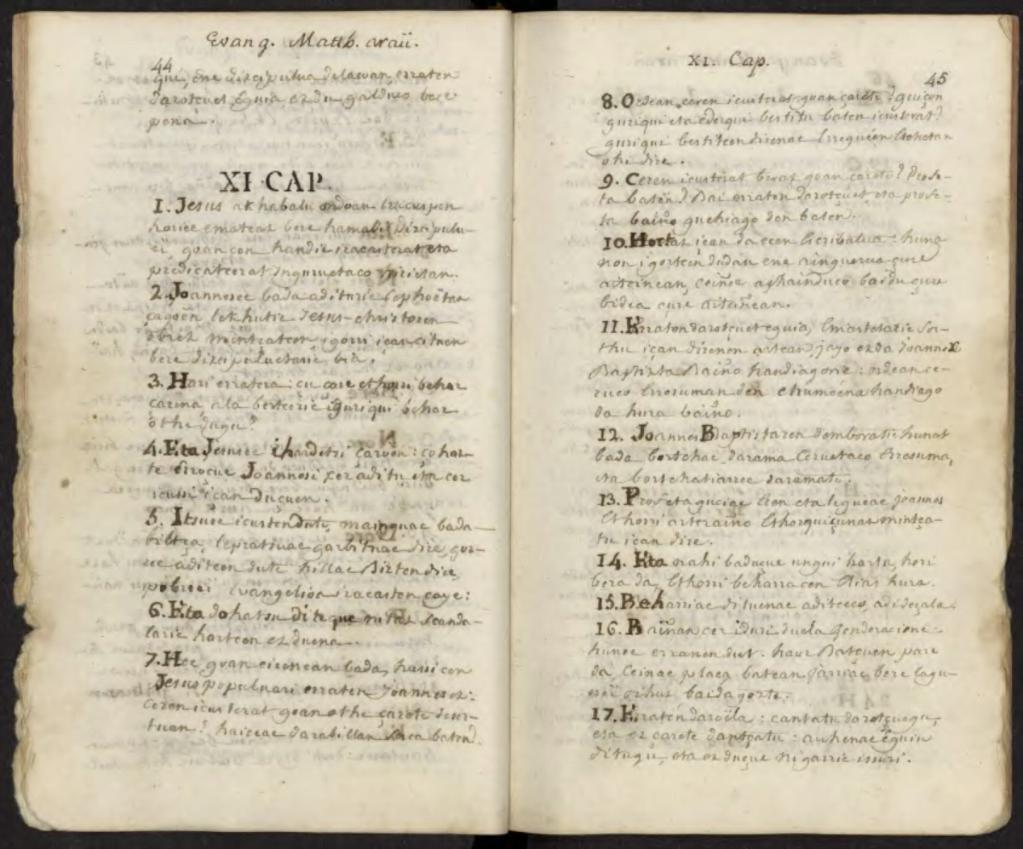 Evang. Matth. araü.
44
que, ene discipulua delacoan, erraten
darotçuet eguia, ez du galduco bere
pena.
XI. CAP.
1. Jesus akhabatu ondoan
emateaz bere hamabi discipulu-
ei, goan çen handic iracasterat eta
predicatcerat inguruetaco hirietan.
2. Joannesec bada adituric
Jesus-christoren
obrez mintçatcen, igorri içan cituen
bere discipuluetaric bia.
3. Hari erratera: cu care ethorri behar
carena ala bertceric iguriqui behar
othe dugu?
4. Eta Jesusec ihardetsi çaroen: çohaz-
te Joannesi cer aditu eta cer
icussi içan duçuen.
5. Itsuec icusten dute, mainguac bada-
biltça, lepratsuac garbituac dire, gor-
rec aditcen dute hillac Bizten dire,
pobreei Evangelioa iracasten çaye:
6. Eta dohatsu dateque nitaz Scanda-
laric hartcen ez duena.
7. Hec goan cirenean bada, hassi cen
Jesus populuari erraten Joannesez:
Ceren icusterat goan othe çarete deser-
tuan? haiceac darabillan baten?
XI. Cap.
45
8. Ordean, ceren icusterat goan çarete? guiçon
guriqui eta ederqui bestitu baten icusterat?
guriqui bestitcen direnac Erreguéen Etchetan
othe dire.
9. Ceren icusterat beraz goan çarete? Profe-
ta baten? Bai erraten darotçuet eta profe-
ta baino guehiago den baten.
10. Hortaz içan da ecen Escribatua: huna
non igortcen dudan ene ainguerua çure
aitcinean, ceiñac aphainduco baidu çure
bidea çure aitcinean.
11. Erraten darotçuet eguia, Emaztetaric Sor-
thu içan direnen artean jayo ez da Joannes
Baptista Baino handiagoric: ordean ce-
ruco Erresuman den chumeena handiago
da hura baino.
12. Joannes Baptistaren demboratic hunat
bada bortchaz darama Ceruetaco Erresuma,
eta bortchatiarrec daramate.
13. Profeta guciac eta legueac joannes
Ethorri arteraino Ethorquiçunaz mintça-
tu içan dire.
14. Eta nahi baduçue ungui hartu, hori
bera da, Ethorri beharra cen Elias hura.
15. Beharriac dituenac aditceco, adi deçala.
16. Bainan cer iduri duela Generacione
hunec erranen dut. haur Batçuen pare
da, Ceinac plaça batean jarriac bere lagu-
nei oihuz baidagozte.
17. Erraten daroëla: cantatu darotçuegu,
eta ez çarete dantçatu: auhenac eguin
ditugu, eta ez duçue nigarric issuri.